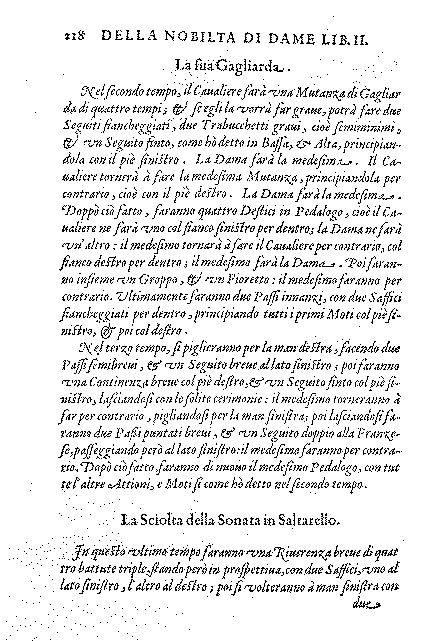 218 DELLA NOBILTA DI DAME LIB. II.
La sua Gagliarda.
Nel secondo tempo, il Caualiere farà vna Mutanza di Gagliar
da di quattro tempi; & se egli la vorrà far graue, potrà fare due
Seguiti fiancheggiati, due Trabucchetti graui, cioè semiminimi,
& vn Seguito finto, come hò detto in Bassa, & Alta, principian-
dola con il piè sinistro. La Dama farà la medesima. Il Ca-
ualiere tornerà à fare la medesima Mutanza, principiandola per
contrario, cioè con il piè destro. La Dama farà la medesima.
Doppò ciò fatto, faranno quattro Destici in Pedalogo, cioè il Ca-
ualiere ne farà vno col fianco sinistro per dentro; la Dama ne farà
vn'altro: il medesimo tornarà à fare il Caualiere per contrario, col
fianco destro per dentro; il medesimo farà la Dama. Poi faran-
no insieme vn Groppo, & vn Fioretto: il medesimo faranno per
contrario. Vltimamente faranno due Passi innanzi, con due Saffici
fiancheggiati per dentro, principiando tutti i primi Moti col piè si-
nistro, & poi col destro.
Nel terzo tempo, si piglieranno per la man destra, facendo due
Passi semibreui, & vn Seguito breue al lato sinistro; poi faranno
vna Continenza breue col piè destro, & vn Seguito finto col piè si-
nistro, lasciandosi con le solite cerimonie: il medesimo torneranno à
far per contrario, pigliandosi per la man sinistra; poi lasciandosi fa-
ranno due Passi puntati breui, & vn Seguito doppio alla Franze-
se, passeggiando però al lato sinistro: il medesimo faranno per contra-
rio. Dopò ciò fatto, faranno di nuouo il medesimo Pedalogo, con tut
te l'altre Attioni, e Moti si come hò detto nel secondo tempo.
La Sciolta della Sonata in Saltarello.
In questo vltimo tempo faranno vna Riuerenza breue di quat
tro battute triple, stando però in prospettiua, con due Saffici, vno al
lato sinistro, l'altro al destro; poi si volteranno à man sinistra con
due